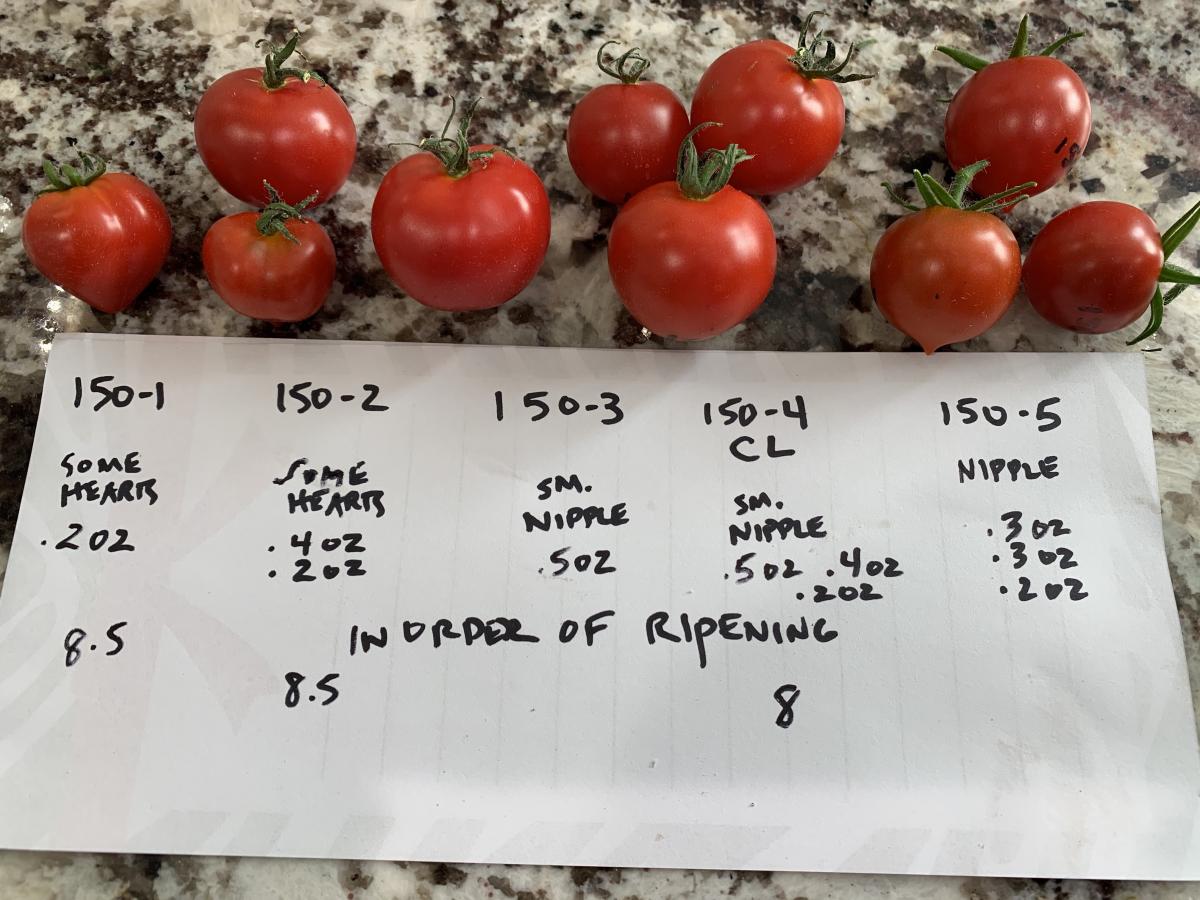 150-1 150-2 150-3 150-4 150-5
CL
SOME HEARTS
SOME HEARTS
SM. NIPPLE
SM. NIPPLE
NIPPLE
.2oz
.4oz
.2oz
.5oz
.5oz .4oz
.2oz
.3oz
.3oz
.2oz
IN ORDER OF RIPENING
8.5
8.5
8